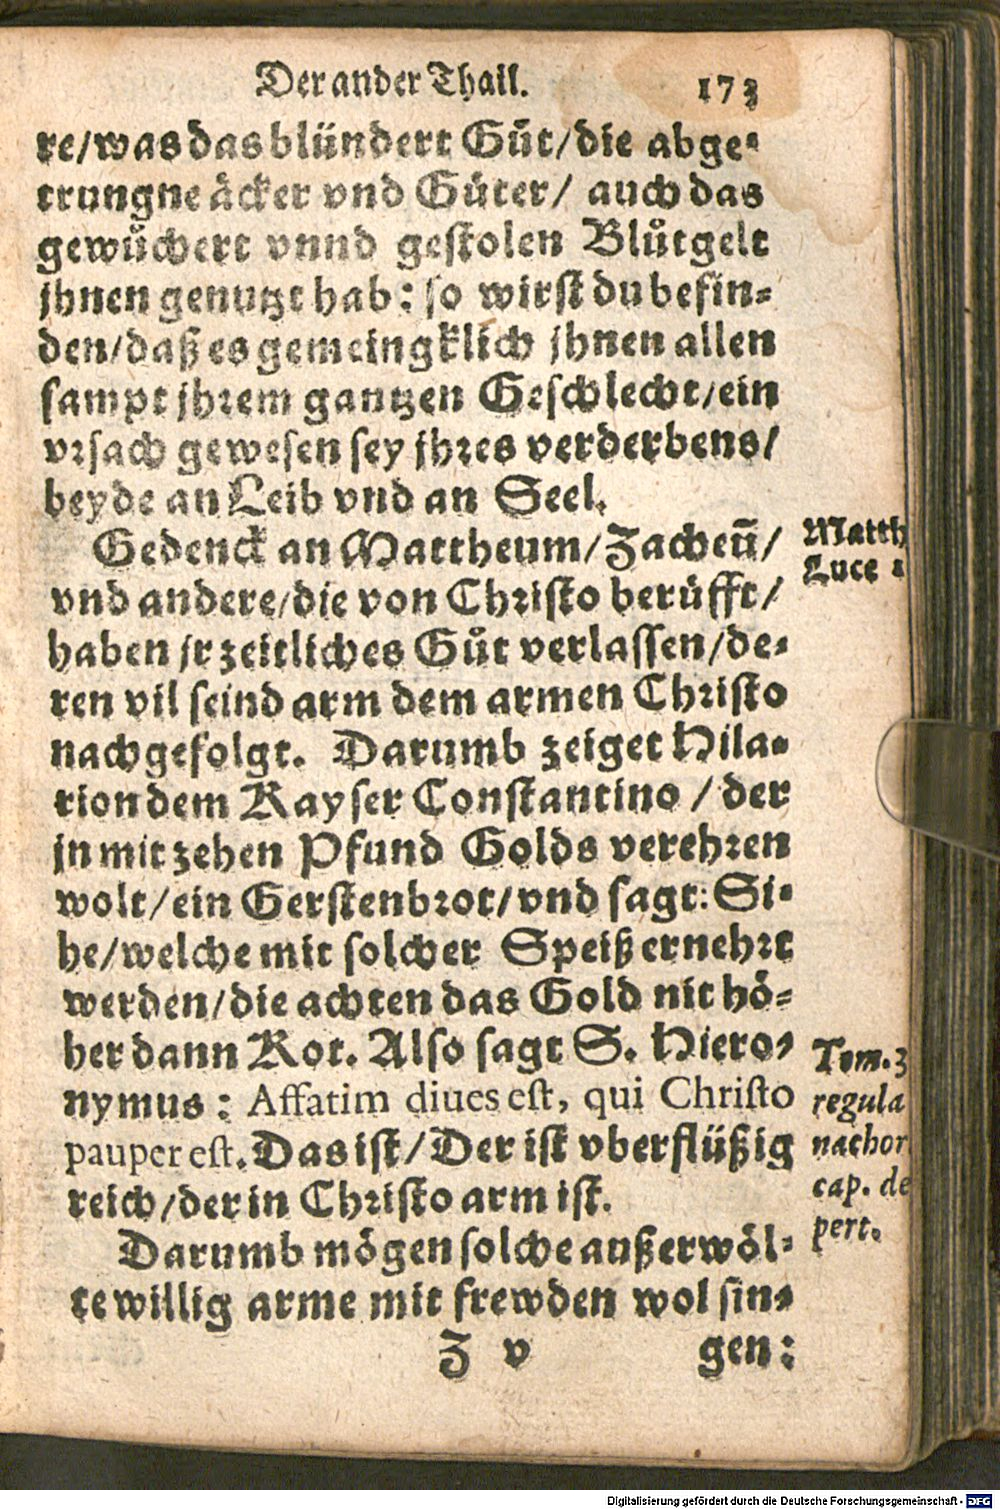 Der ander Thail. 173
re/was das blündert Gůt/die abge-
trungne äcker vnd Güter/ auch das
gewůchert vnnd gestolen Blůtgelt
jhnen genutzt hab: so wirst du befin-
den/daß es gemeingklich jhnen allen
sampt jhrem gantzen Geschlecht/ein
vrsach gewesen sey jhres verderbens/
beyde an Leib vnd an Seel.
Gedenck an Mattheum/Zacheū/
vnd andere/die von Christo berüfft/
haben jr zeitliches Gůt verlassen/de-
ren vil seind arm dem armen Christo
nachgefolgt. Darumb zeiget Hila-
rion dem Kayser Constantino / der
jn mit zehen Pfund Golds verehren
wolt/ein Gerstenbrot/vnd sagt: Si-
he/welche mit solcher Speiß ernehrt
werden/die achten das Gold nit hö-
her dann Kot. Also sagt S. Hiero-
nymus: Affatim diues est, qui Christo
pauper est. Das ist/Der ist vberflüßig
reich/der in Christo arm ist.
Darumb mögen solche außerwöl-
te willig arme mit frewden wol sin-
Z v gen:
Matth
Luce 1
Tom. 3
regula
nachor
cap. de
pert.
Digitalisierung gefördert durch die Deutsche Forschungsgemeinschaft - DFG